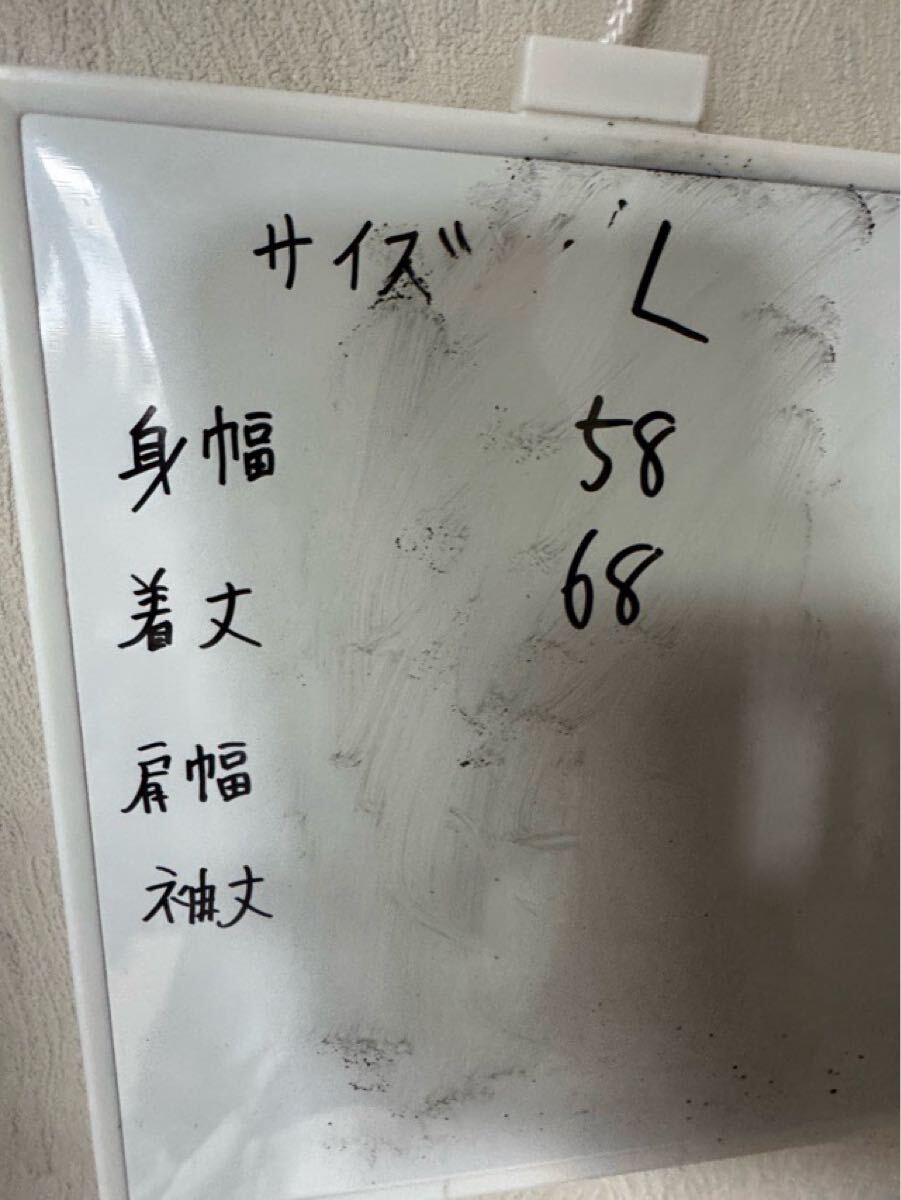 サイズ L
身幅 58
着丈 68
肩幅
袖丈